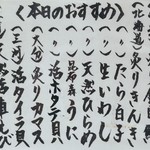 〈本日のおすすめ〉
(北海道)炙りきんき
(〃)たら白子
(〃)生いわし
(〃)天然ひらめ
(〃)昆布森うに
(〃)活ホタテ貝
(大分)炙りカマス
(三河)活タイラ貝